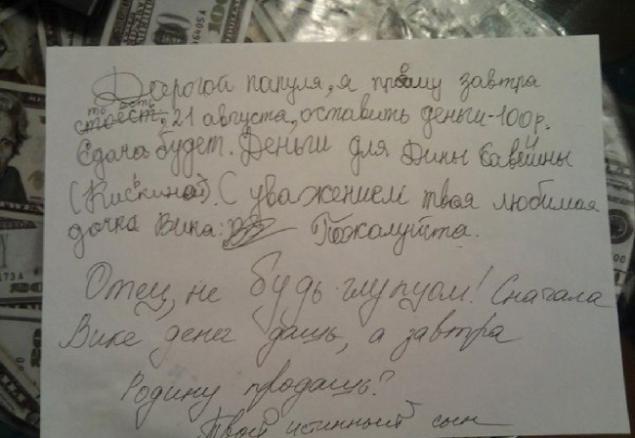 Дорогой папуля, я прошу завтра
то есть
21 августа, оставить деньги-100р.
Сдача будет. Деньги для Дины
(Кискиной). С уважением твоя любимая
дочка Вика. Пожалуйста.
Отец, не будь глупцом! Сначала
Вике денег дашь, а завтра
Родину продашь?
Твой истинный сын